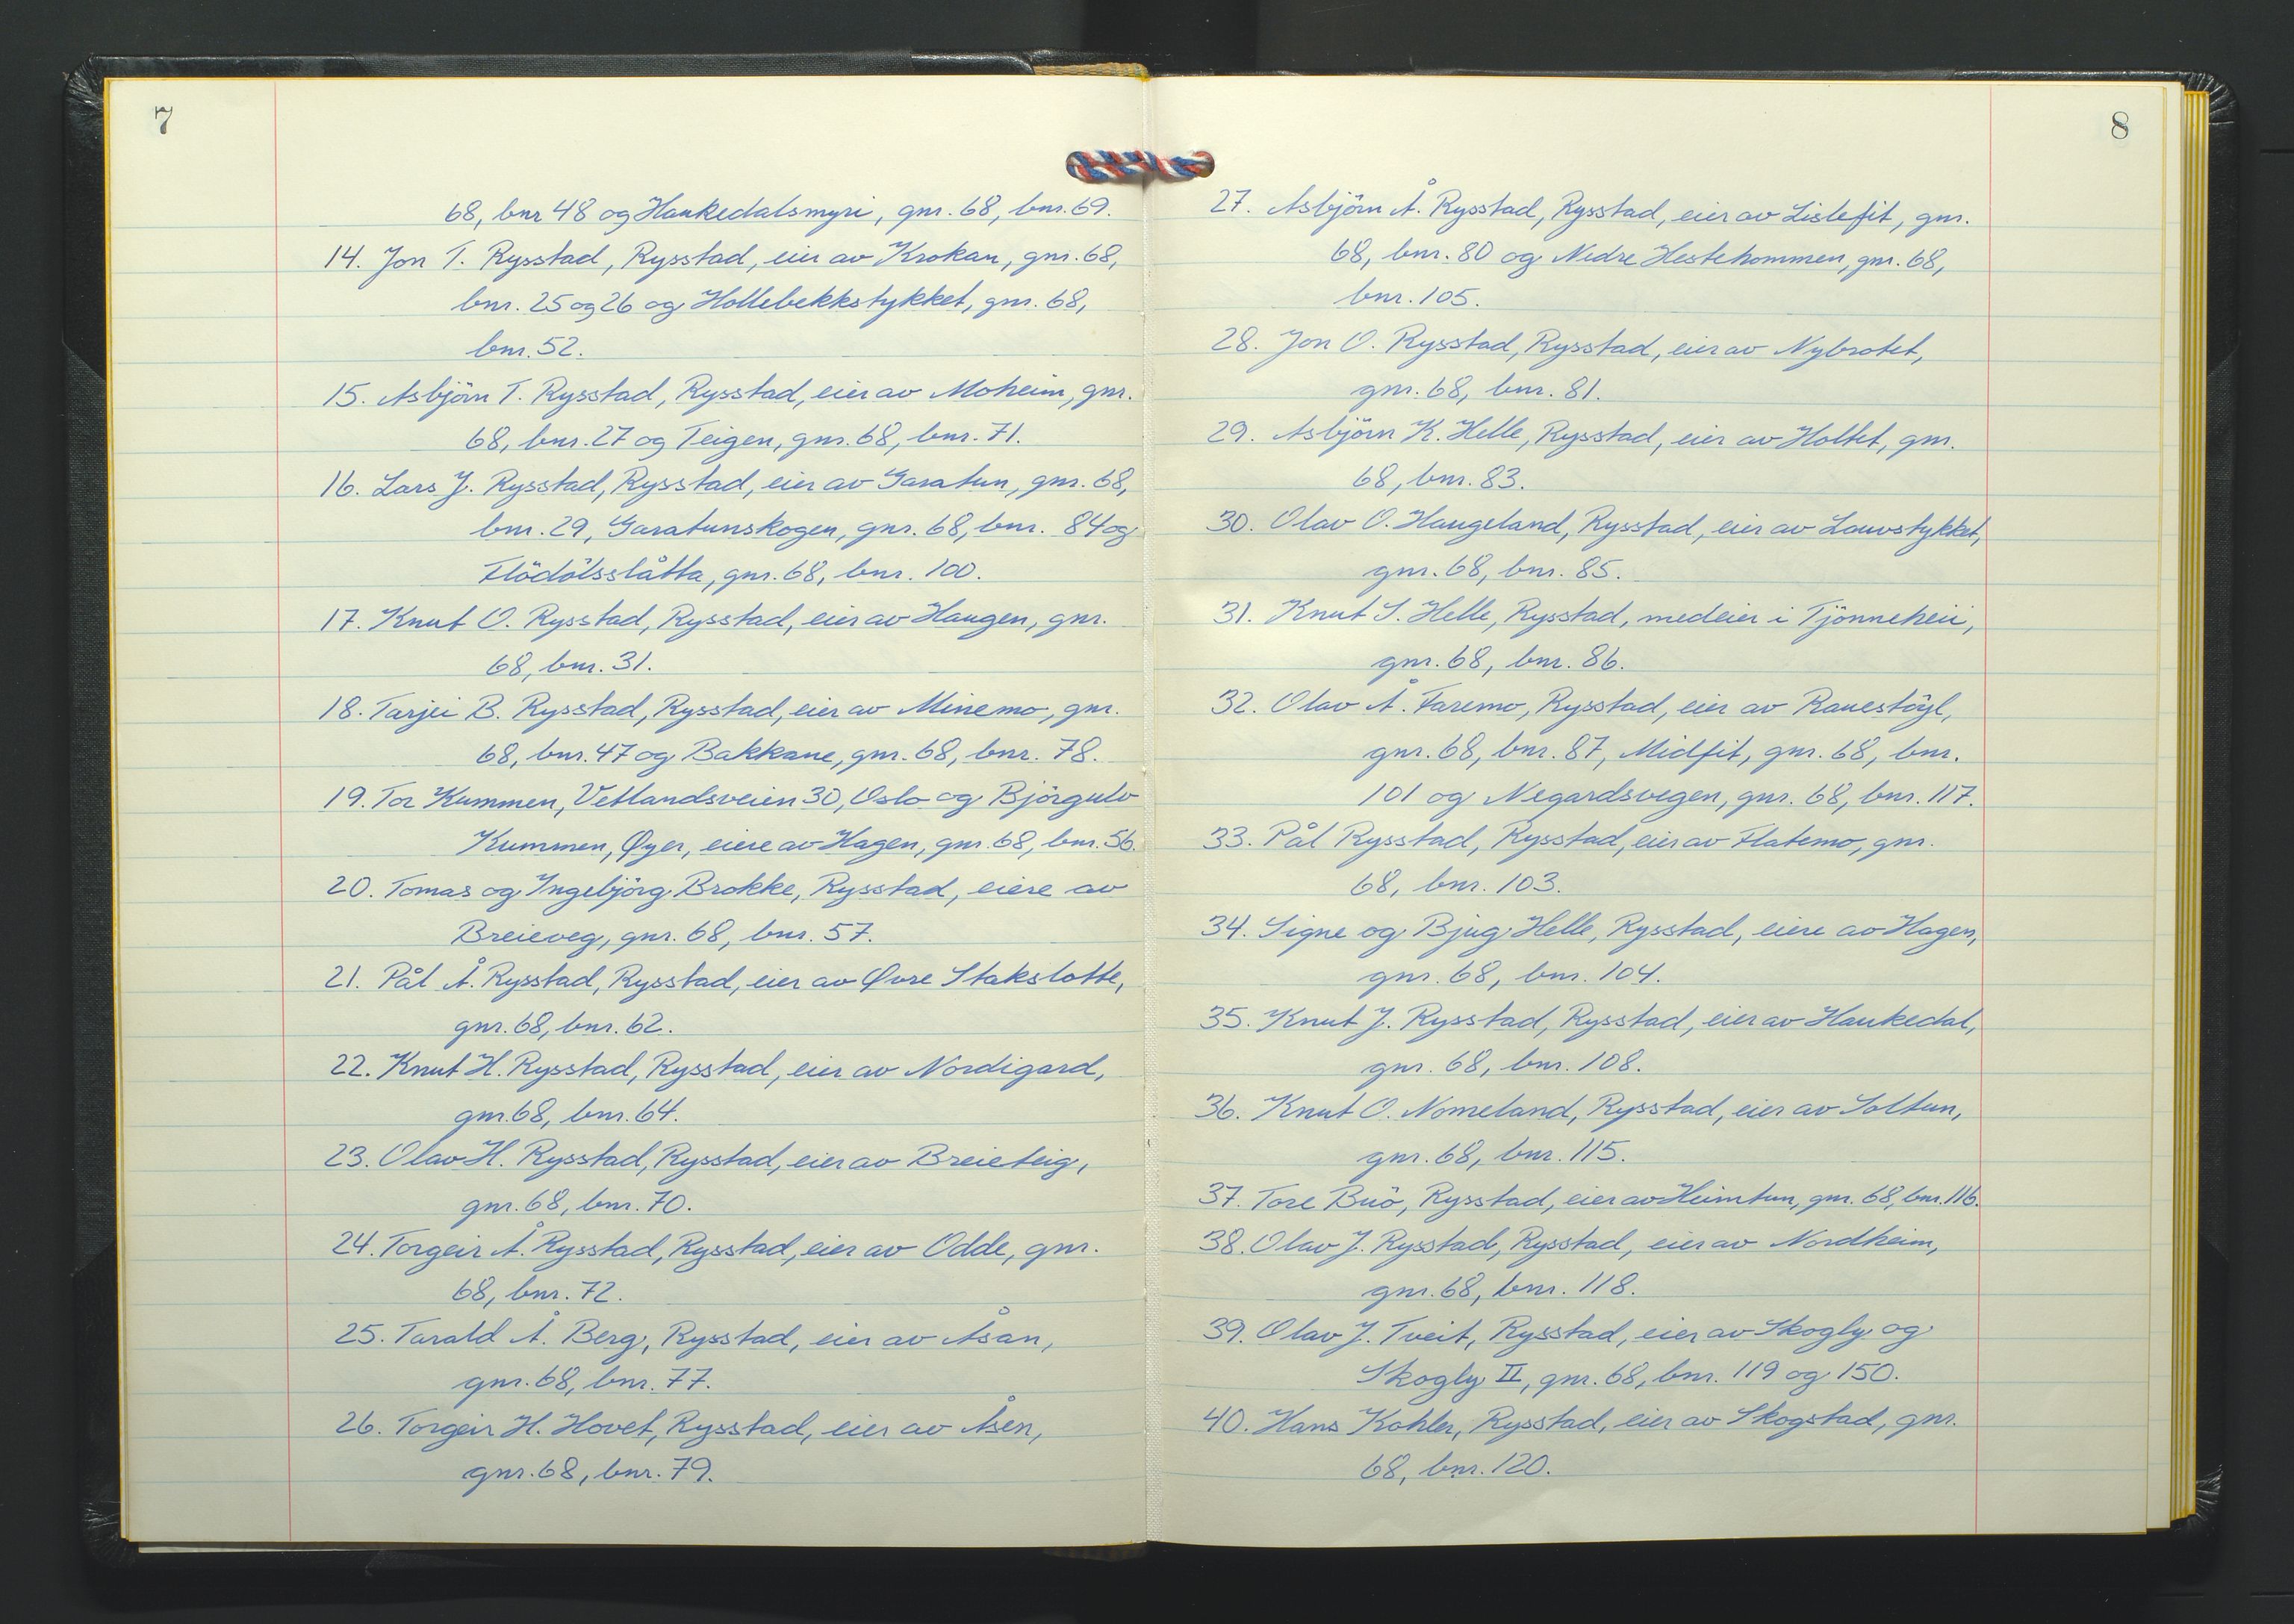 7
68, bnr 48 og Haukedalsmyri, gnr. 68, bnr. 69.
14. Jon T. Rysstad, Rysstad, eier av Krokan, gnr. 68,
bnr. 25 og 26 og Hollebekkstykket, gnr. 68,
bnr. 52.
15. Asbjörn T. Rysstad, Rysstad, eier av Moheim, gnr.
68, bnr. 27 og Teigen, gnr. 68, bnr. 71.
16. Lars J. Rysstad, Rysstad, eier av Garatun, gnr. 68,
bnr. 29, Garatunskogen, gnr. 68, bnr. 84 og
Flödölsslåtta, gnr. 68, bnr. 100.
17. Knut O. Rysstad, Rysstad, eier av Haugen, gnr.
68, bnr. 31.
18. Tarjei B. Rysstad, Rysstad, eier av Minemo, gnr.
68, bnr. 47 og Bakkane, gnr. 68, bnr. 78.
19. Tor Kummen, Vetlandsveien 30, Oslo og Björgulv
Kummen, Øyer, eiere av Hagen, gnr. 68, bnr. 56.
20. Tomas og Ingebjörg Brokke, Rysstad, eiere av
Breieveg, gnr. 68, bnr. 57.
21. Pål Å. Rysstad, Rysstad, eier av Øvre Stakslotte,
gnr. 68, bnr. 62.
22. Knut H. Rysstad, Rysstad, eier av Nordigard,
gnr. 68, bnr. 64.
23. Olav H. Rysstad, Rysstad, eier av Breieteig,
gnr. 68, bnr. 70.
24. Torgeir Å. Rysstad, Rysstad, eier av Odde, gnr.
68, bnr. 72.
25. Tarald Å. Berg, Rysstad, eier av Åsan,
gnr. 68, bnr. 77.
26. Torgeir H. Hovet, Rysstad, eier av Åsen,
gnr. 68, bnr. 79.
8
27. Asbjörn Å. Rysstad, Rysstad, eier av Lislefit, gnr.
68, bnr. 80 og Nedre Hestehommen, gnr. 68,
bnr. 105.
28. Jon O. Rysstad, Rysstad, eier av Nybrotet,
gnr. 68, bnr. 81.
29. Asbjörn K. Helle, Rysstad, eier av Holtet, gnr.
68, bnr. 83.
30. Olav O. Haugeland, Rysstad, eier av Lauvstykket,
gnr. 68, bnr. 85.
31. Knut S. Helle, Rysstad, medeier i Tjönneheii,
gnr. 68, bnr. 86.
32. Olav Å. Faremo, Rysstad, eier av Rauestöyl,
gnr. 68, bnr. 87, Midfit, gnr. 68, bnr.
101 og Negardsvegen, gnr. 68, bnr. 117.
33. Pål Rysstad, Rysstad, eier av Flatemo, gnr.
68, bnr. 103.
34. Signe og Bjug Helle, Rysstad, eiere av Hagen,
gnr. 68, bnr. 104.
35. Knut J. Rysstad, Rysstad, eier av Haukedal,
gnr. 68, bnr. 108.
36. Knut O. Nomeland, Rysstad, eier av Soltun,
gnr. 68, bnr. 115.
37. Tore Buö, Rysstad, eier av Heimtun, gnr. 68, bnr. 116.
38. Olav J. Rysstad, Rysstad, eier av Nordheim,
gnr. 68, bnr. 118.
39. Olav J. Tveit, Rysstad, eier av Skogly og
Skogly II, gnr. 68, bnr. 119 og 150.
40. Hans Kohler, Rysstad, eier av Skogstad, gnr.
68, bnr. 120.